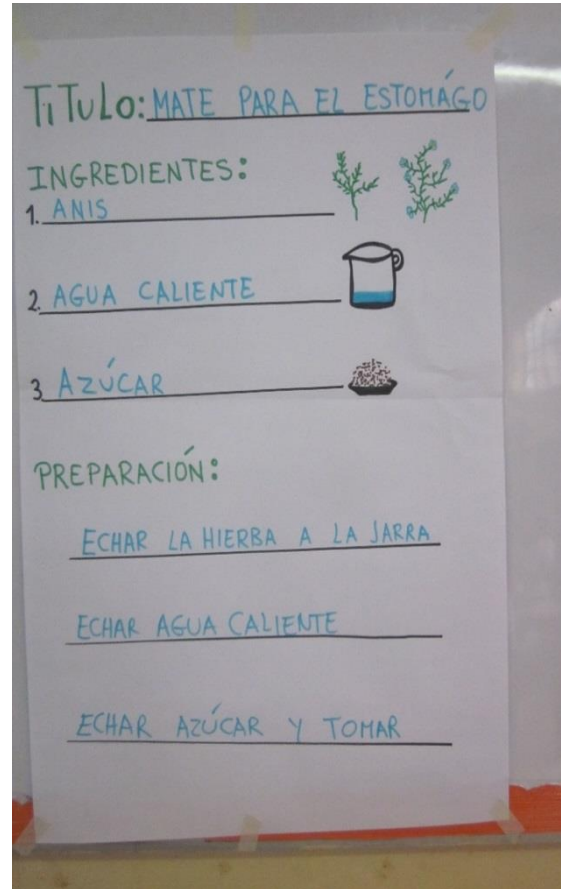 TíTULO: MATE PARA EL ESTOMÁGO
INGREDIENTES:
1. ANIS
2. AGUA CALIENTE
3 AZÚCAR
PREPARACIÓN:
ECHAR LA HIERBA A LA JARRA
ECHAR AGUA CALIENTE
ECHAR AZÚCAR Y TOMAR